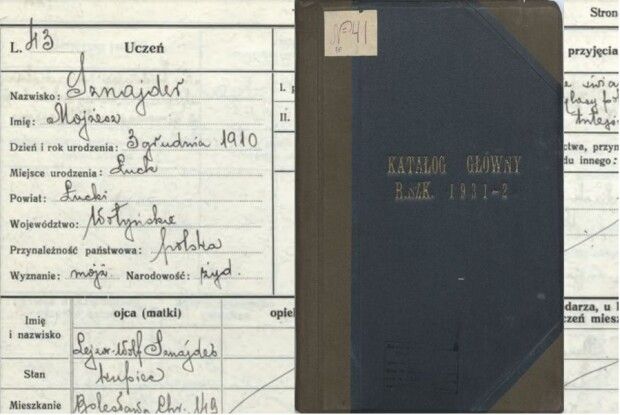 L. 43 Uczeń
Nazwisko: Sznajder
Imię: Mojżesz
Dzień i rok urodzenia: 3 grudnia 1910
Miejsce urodzenia: Łuck
Powiat: Łucki
Województwo: Wołyńskie
Przynależność państwowa: polska
Wyznanie: mojż Narodowość: żyd.
Imię i nazwisko
ojca (matki)
Lejzor-Wolf Sznajder
Stan
kupiec
Mieszkanie
Bolesława Chr. 149
opie
I.
II.
№ 41
KATALOG GŁÓWNY
R. SZK. 1931-2
Stron
przyjęcia
ctwa, przyn
du innego:
darza, u
czeń miesz